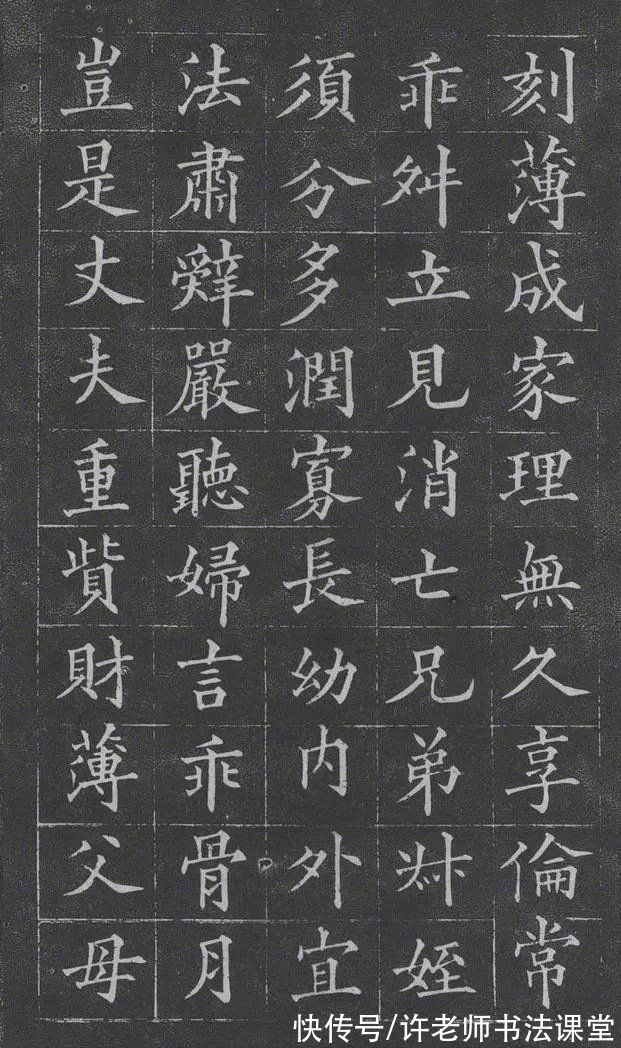 刻薄成家理無久享倫常
乖舛立見消亡兄弟叔姪
須分多潤寡長幼內外宜
法肅辤嚴聽婦言乖骨月
豈是丈夫重貲財薄父母
快传号/许老师书法课堂